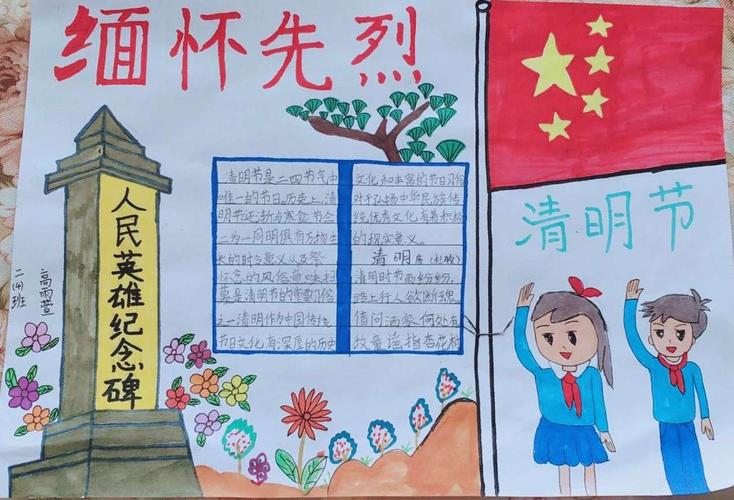 缅怀先烈
人民英雄纪念碑
二(4)班
高雨萱
清明节是二四节气中
唯一的节日。历史上,清
明节还渐与寒食节合
二为一同明俱有万物生
长的时令意义以及祭
怀念的风俗 扫
墓是清明节的重要习俗
之一清明作为中国传统
节日文化有深厚的历史
文化和丰富的节日风俗
对于弘扬中华民族传
统优秀文化有着积极
的现实意义。
清明 唐(杜牧)
清明时节雨纷纷,
路上行人欲断魂
借问酒家何处有
牧童谣指杏花村
清明节